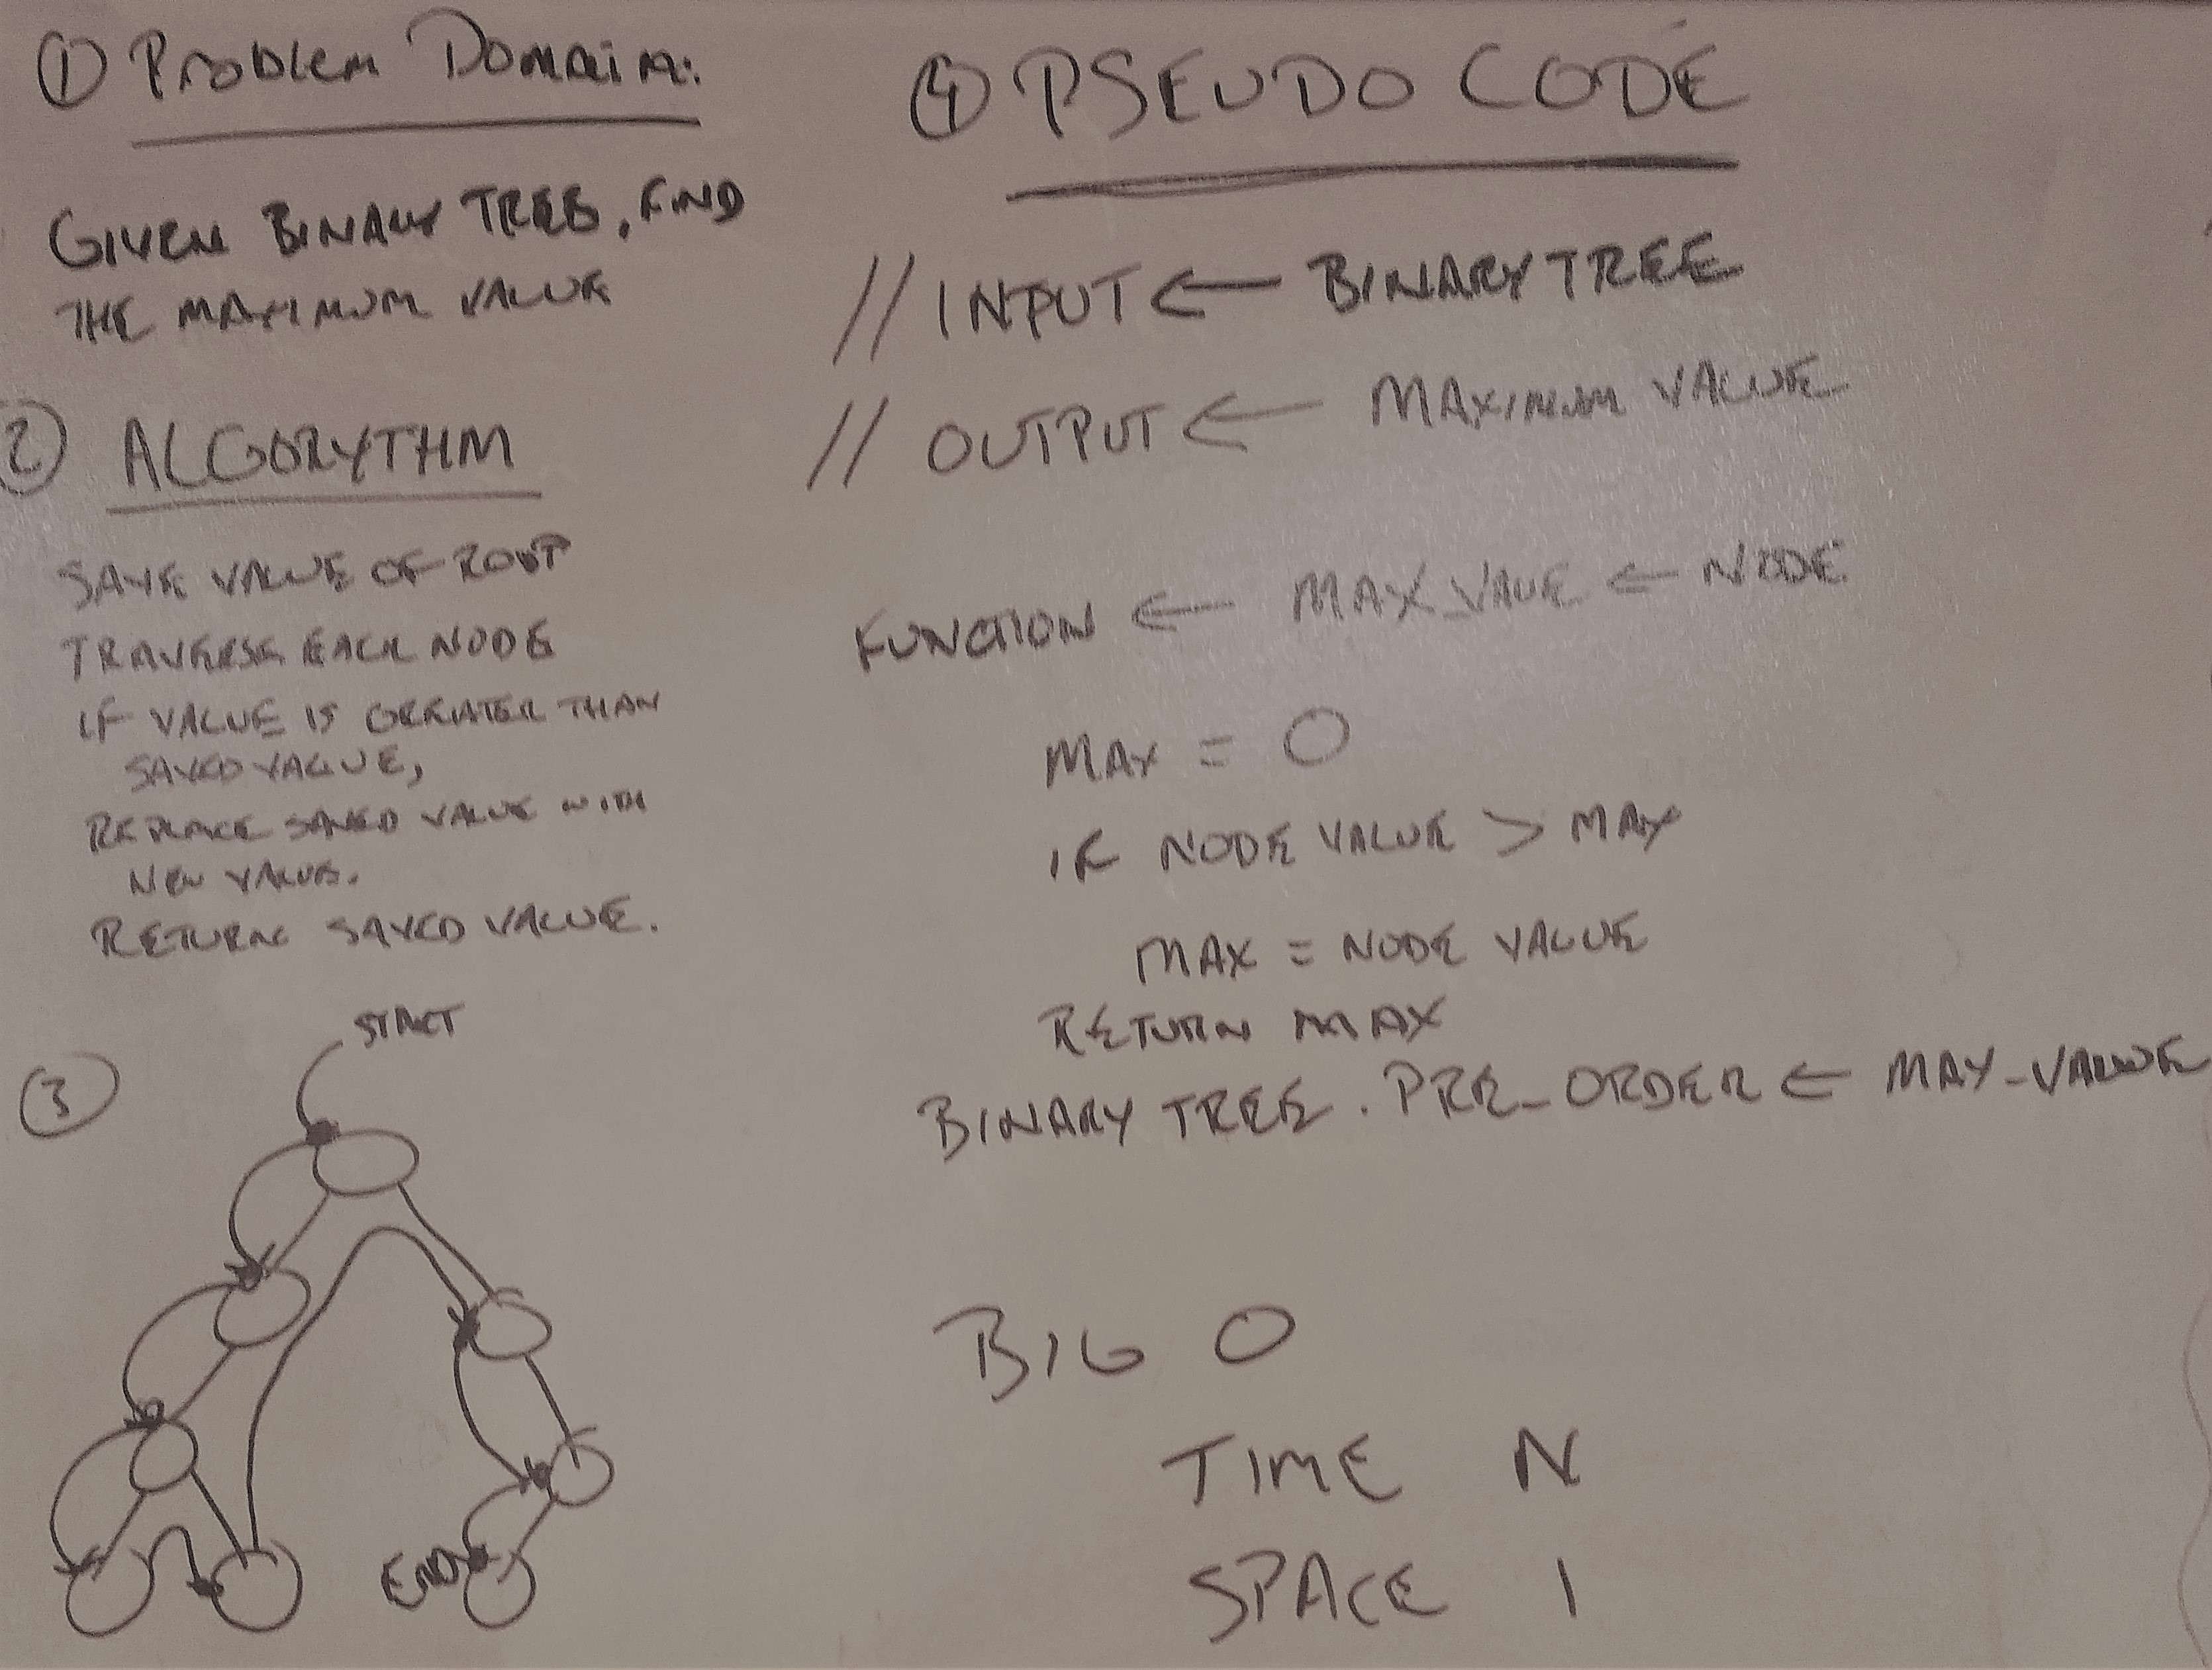 ① Problem Domain:
GIVEN BINARY TREE, FIND
THE MAXIMUM VALUE
② ALGORYTHM
SAVE VALUE OF ROOT
TRAVERSE EACH NODE
IF VALUE IS GREATER THAN
SAVED VALUE,
REPLACE SAVED VALUE WITH
NEW VALUE.
RETURN SAVED VALUE.
③
START
END
④ PSEUDO CODE
// INPUT ← BINARY TREE
// OUTPUT ← MAXIMUM VALUE
FUNCTION ← MAX_VAUE ← NODE
MAX = 0
IF NODE VALUE > MAX
MAX = NODE VALUE
RETURN MAX
BINARY TREE. PRE_ORDER ← MAX_VALUE
BIG O
TIME N
SPACE 1